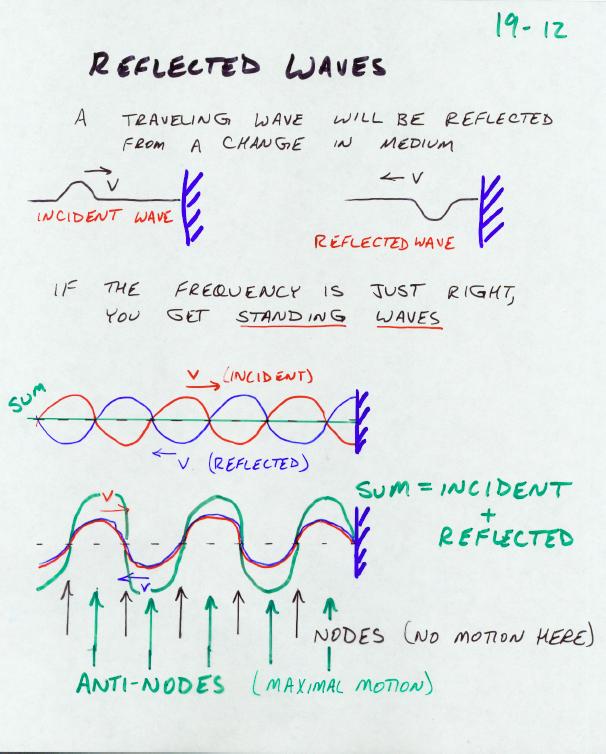 19-12
REFLECTED WAVES
A TRAVELING WAVE WILL BE REFLECTED
FROM A CHANGE IN MEDIUM
V
INCIDENT WAVE
V
REFLECTED WAVE
IF THE FREQUENCY IS JUST RIGHT,
YOU GET STANDING WAVES
SUM
V (INCIDENT)
V (REFLECTED)
V
V
SUM = INCIDENT
+
REFLECTED
NODES (NO MOTION HERE)
ANTI-NODES (MAXIMAL MOTION)